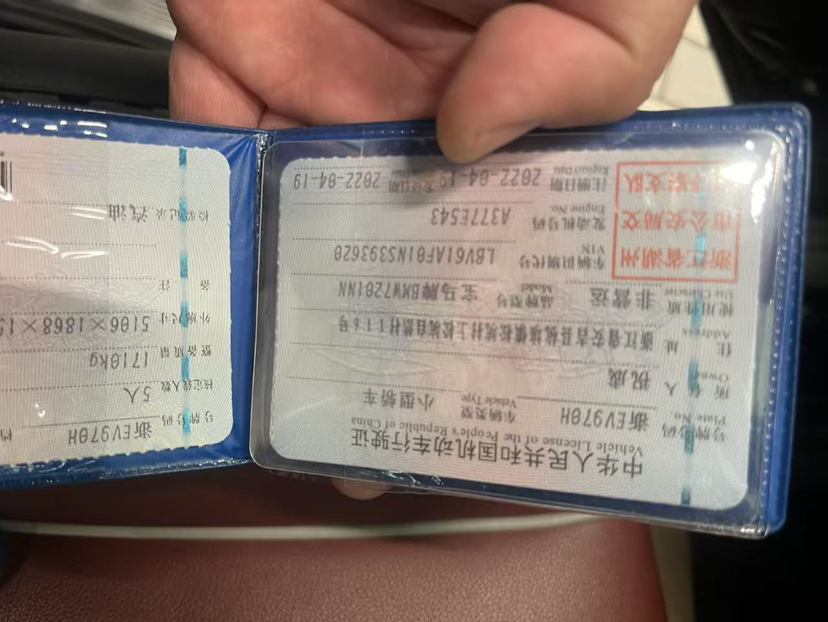 中华人民共和国机动车行驶证
Vehicle License of the People's Republic of China
号牌号码 浙EV970H 车辆类型 小型轿车
Plate No. Vehicle Type
所有人 祝成
Owner
住址 浙江省安吉县梅溪镇
Address
使用性质 非营运 品牌型号 宝马牌BMW7201NN
Use Character Model
浙江省湖州
市公安局交
车辆识别代号 LBV61AF01NS393620
VIN
发动机号码 A377E543
Engine No.
注册日期 2022-04-19 发证日期 2022-04-19
Register Date Issue Date
号牌号码 浙EV970H
核定载人数 5人
整备质量 1710kg
外廓尺寸 5106×1868×15
备注
检验记录 汽油